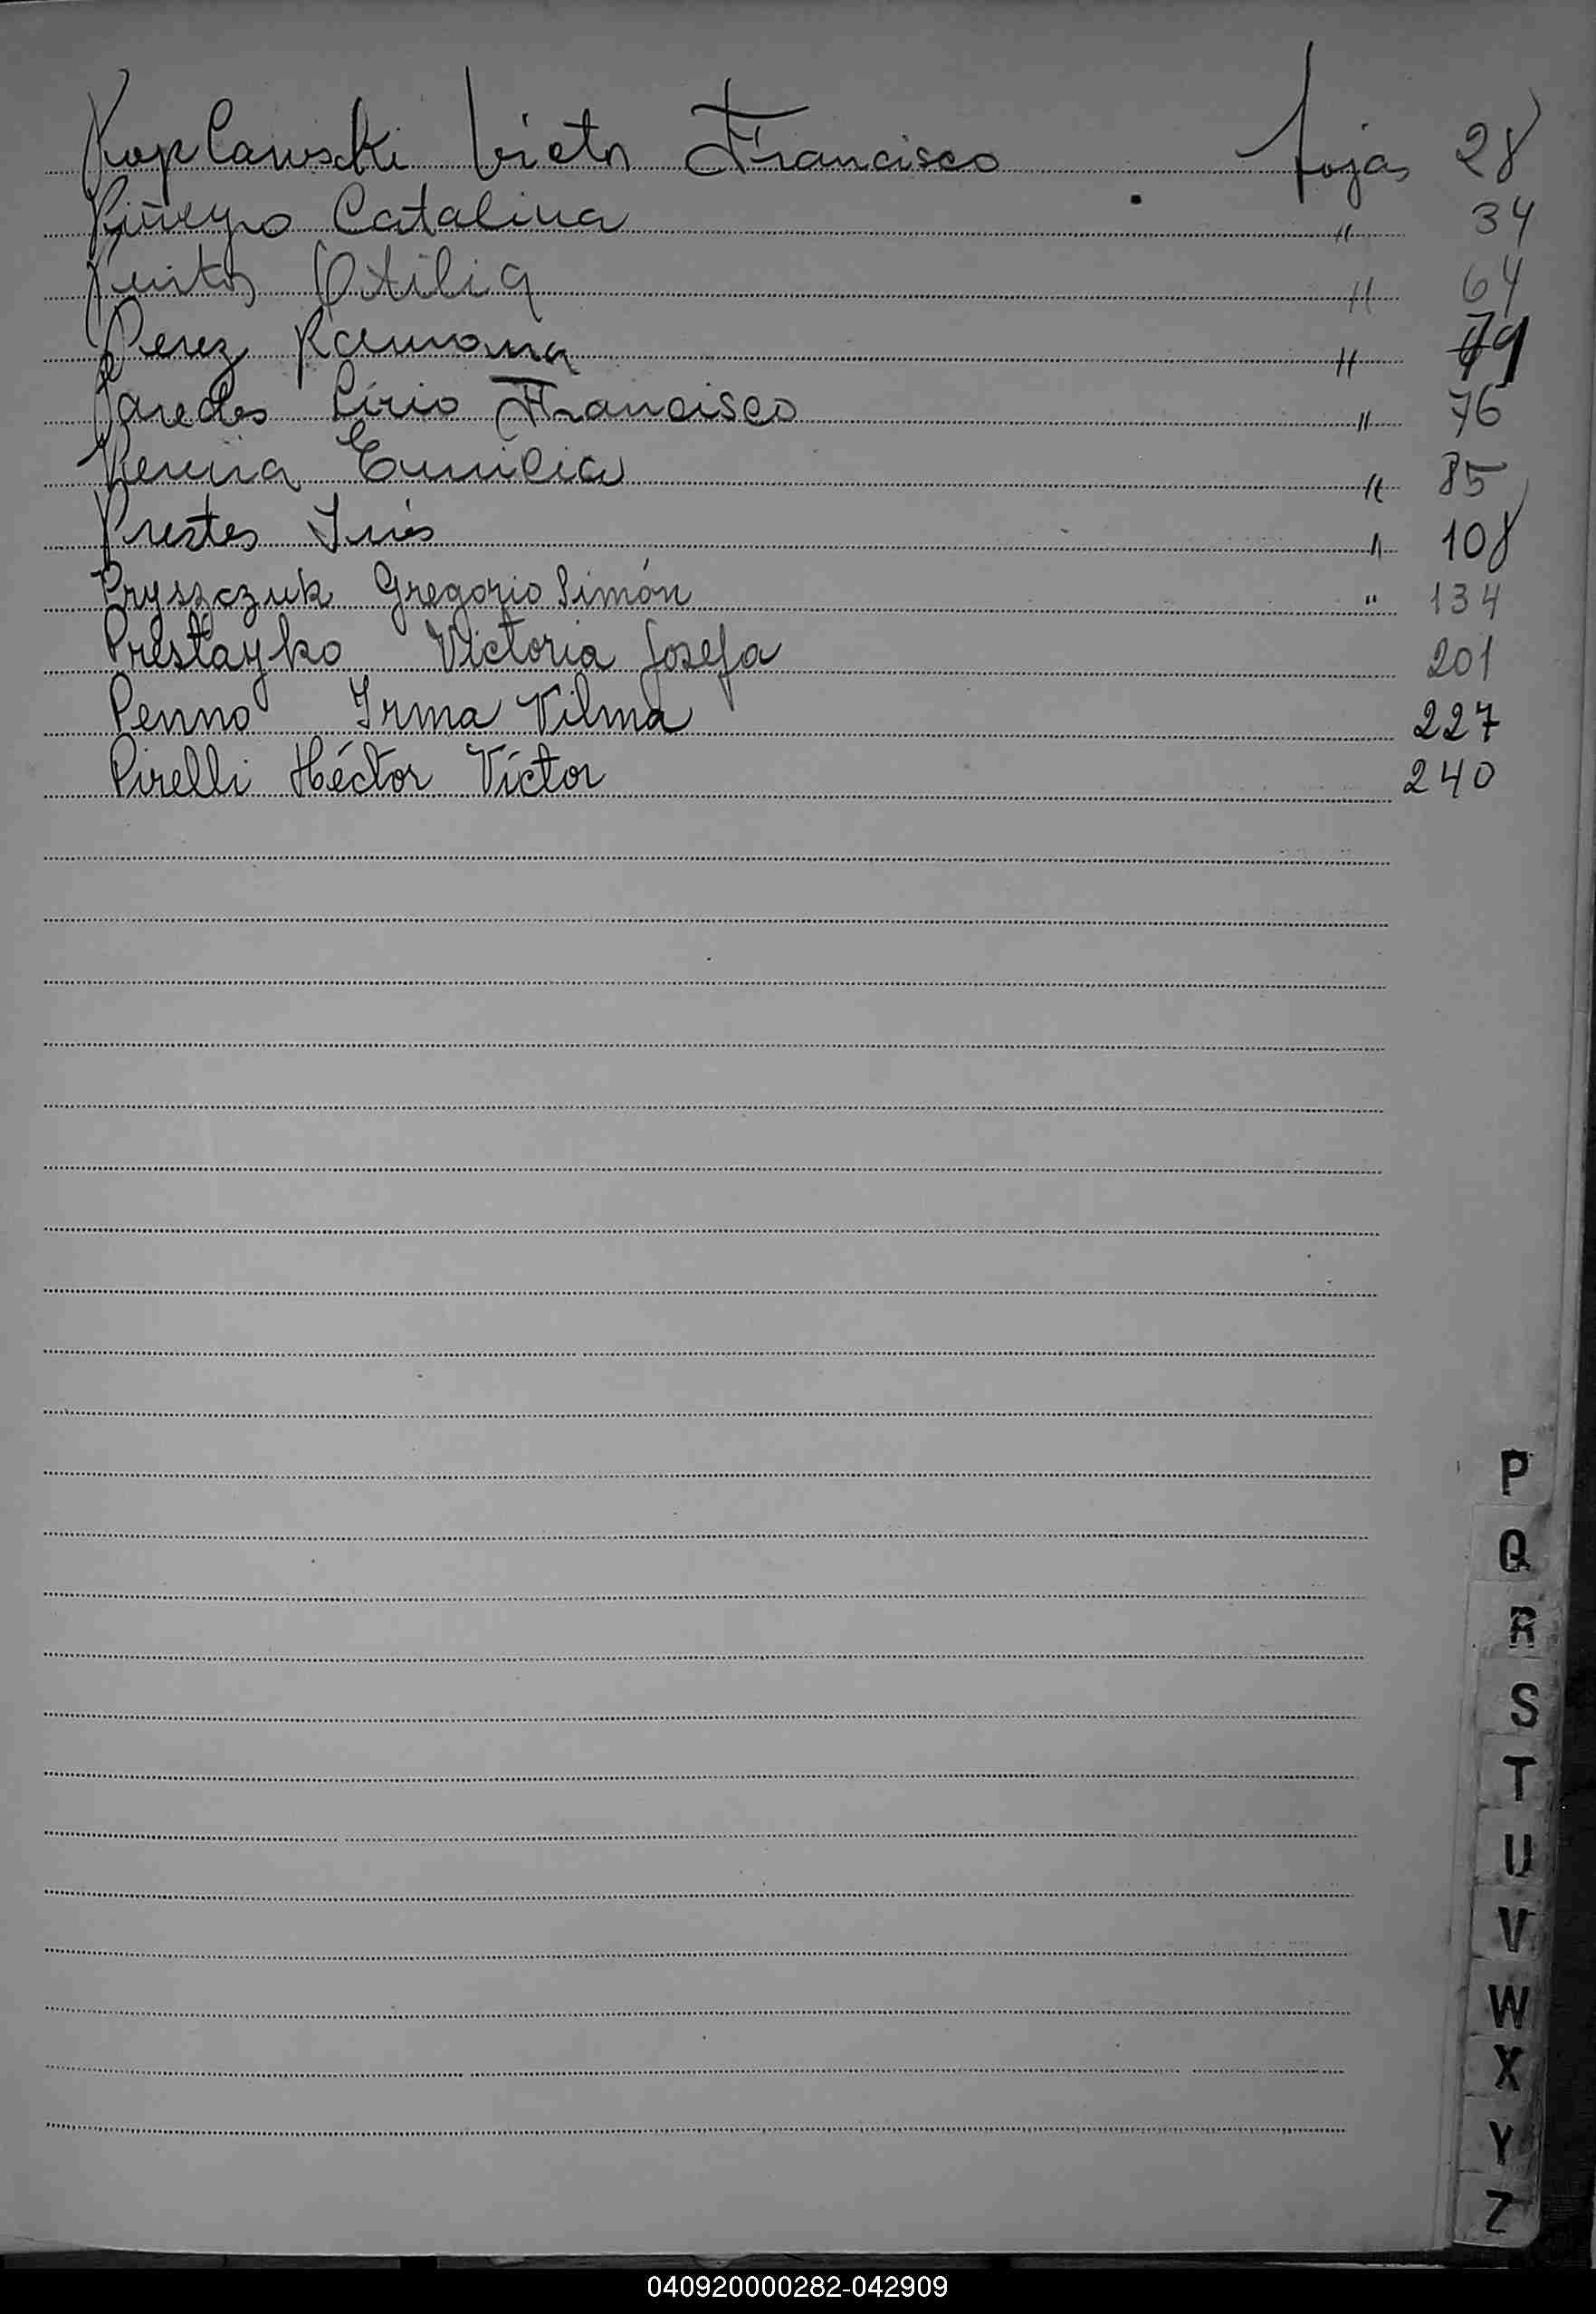 Poplawski Victor Francisco fojas 28
Piñeyro Catalina " 34
Otilia " 64
Perez Ramona " 79
Paredes Lirio Francisco " 76
Penna Emilia " 85
Prestes Inés " 108
Pryszczuk Gregorio Simón " 134
Prestayko Victoria Josefa 201
Penno Irma Vilma 227
Pirelli Héctor Víctor 240
P
Q
R
S
T
U
V
W
X
Y
Z
040920000282-042909